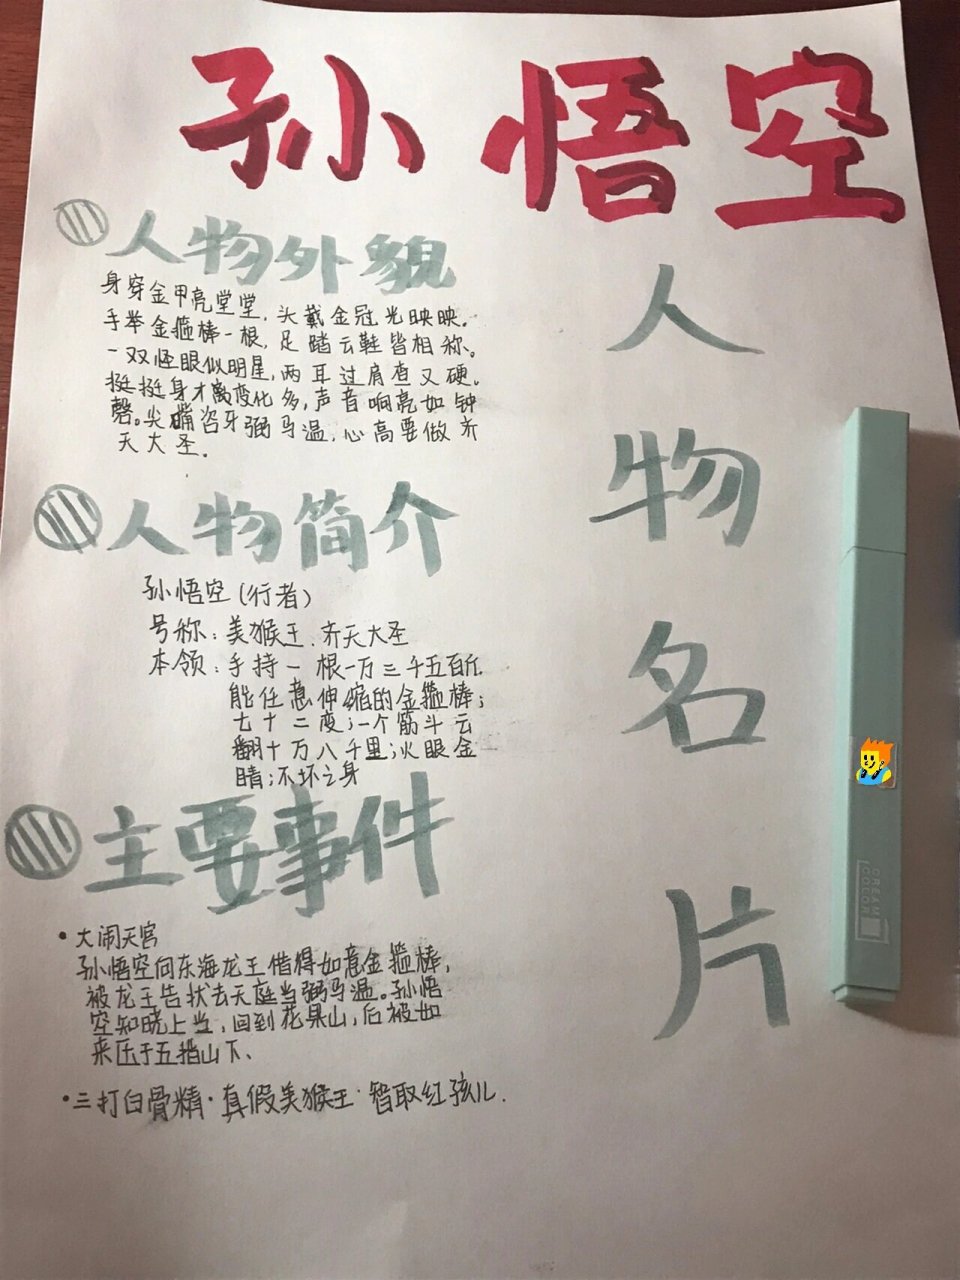 孙悟空
人物名片
人物外貌
身穿金甲亮堂堂，头戴金冠光映映。
手举金箍棒一根，足踏云鞋皆相称。
一双怪眼似明星，两耳过肩查又硬。
挺挺身才离变化多，声音响亮如钟
磬。尖嘴咨牙弼马温，心高要做齐
天大圣.
人物简介
孙悟空(行者)
号称：美猴王、齐天大圣
本领：手持一根一万三千五百斤
能任意伸缩的金箍棒；
七十二变；一个筋斗云
翻十万八千里；火眼金
睛；不坏之身
主要事件
•大闹天宫
孙悟空向东海龙王借得如意金箍棒，
被龙王告状去天庭当弼马温。孙悟
空知晓上当，回到花果山，后被如
来压于五指山下、
•三打白骨精·真假美猴王·智取红孩儿.
CREAM
COLOR